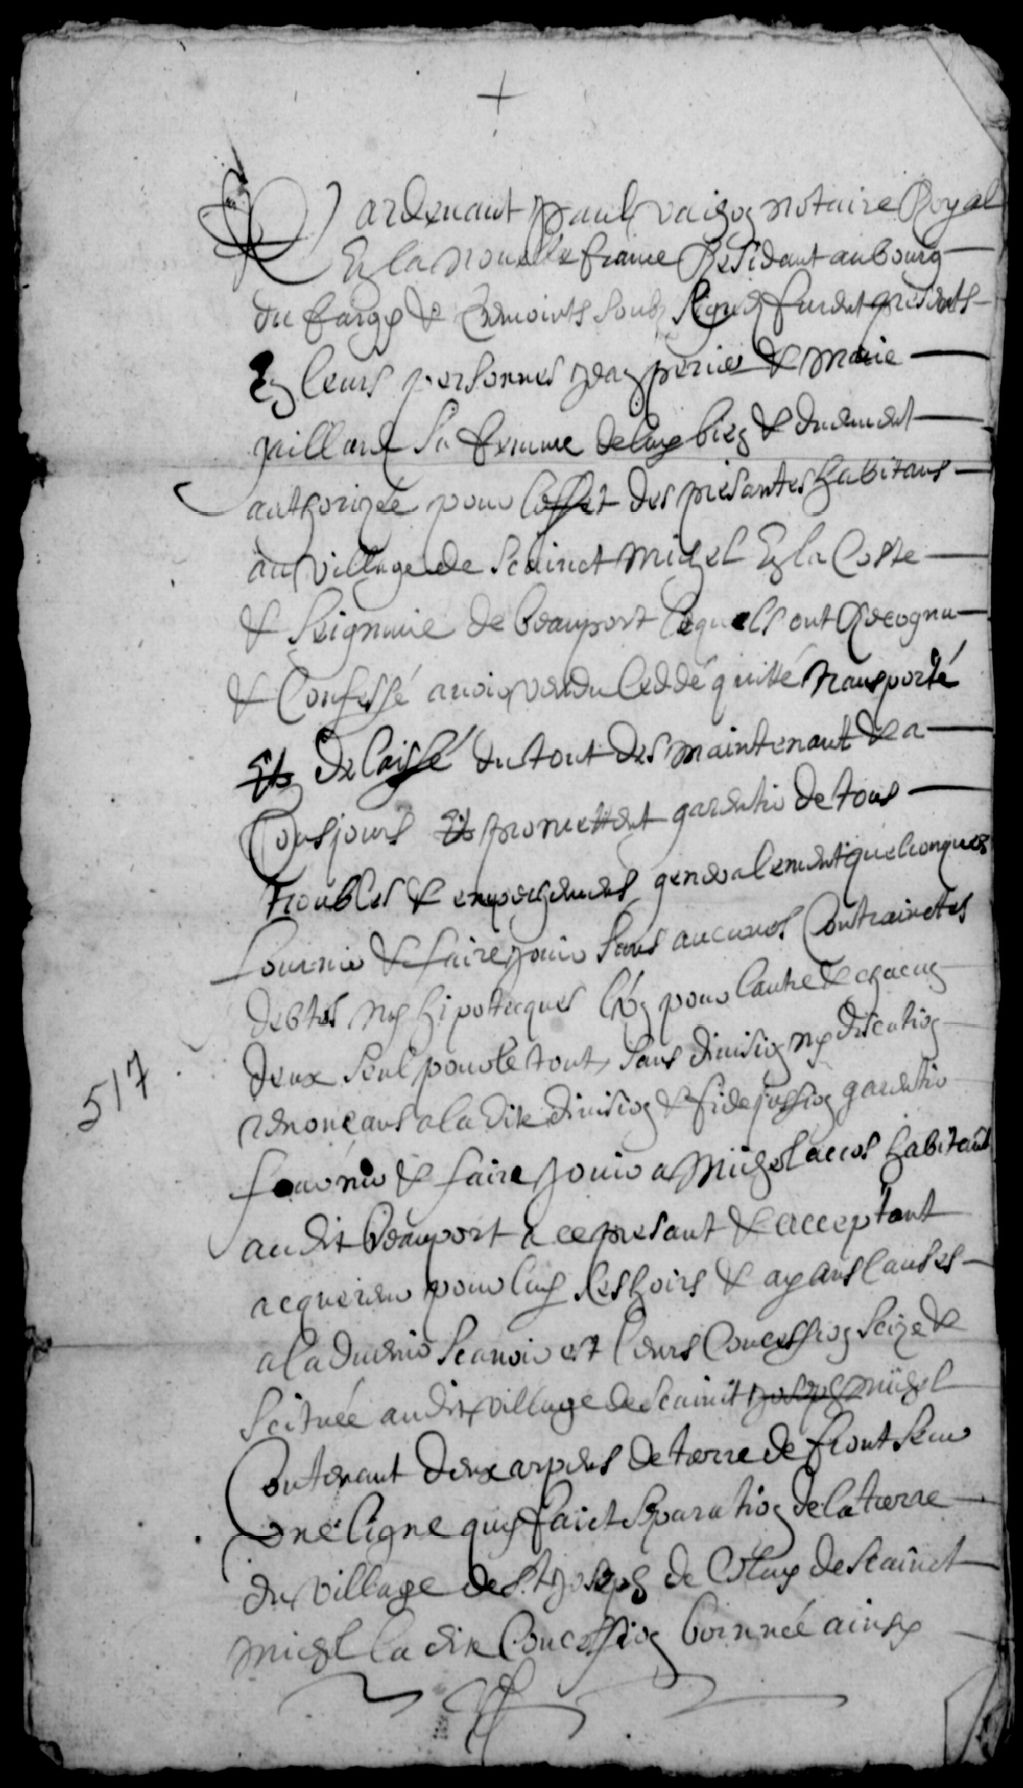 +
Pardevant paul vachon notaire Royal
En la nouvelle france Residant au bourg
du fargy & temoints soubz signez furent presents
En leurs personnes jean & marie
gaillard sa femme de luy bien & duement
authorizée pour leffet des presantes habitans
au village de Scainct Michel En la Coste
& Seignurie de beauport lequels ont Recognu
& Confessé avoir vendu Ceddé quitté transporté
Et delaissé du tout des maintenant & a
Tousjours Et promettent garentir de tous
troubles & empeschemens generalement quelconques
fournir & faire jouir sans aucunes Contrainctes
debtes ny hipotecques lun pour lautre & chacun
deux seul pour le tout sans division ny discution
renonceans a la dite division & fidejussion garentir
fournir & faire jouir a Michel habitant
au dit beauport a ce presant & acceptant
acquereur pour luy ses hoirs & ayans causes
a ladvenir Scavoir est leurs Concession seize &
Scituée audit village de Scainct joseph michel
Contenant deux arpens de terre de front seur
une ligne quy faict separation de la terre
du village de St joseph de Celuy de Scainct
michel la dite Concession bornnée ainsy
517